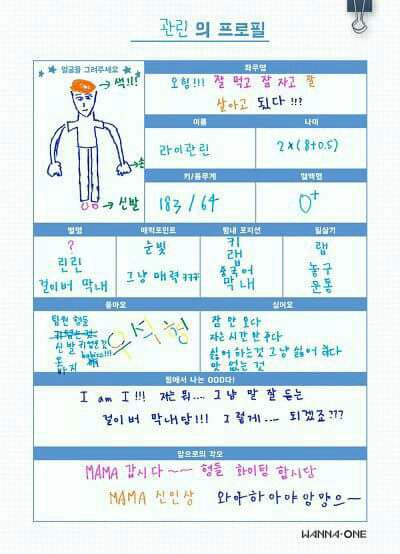 관린 의 프로필
얼굴을 그려주세요
색!!!
손
신발
좌우명
오형!!! 잘 먹고 잠 자고 잘
살아고 됬다 !!?
이름
나이
라이관린
2×(8+0.5)
키/몸무게
혈액형
183 / 64
O+
별명
매력포인트
팀내 포지션
필살기
?
린린
걸이버 막내
눈빛
그냥 매력 ㅋㅋㅋ
키
랩
중국어
막내
랩
농구
운동
좋아요
싫어요
팀원 형들
신발
옷
바지
우석형
잠 안 오다
자는 시간 안 준다
싫어 하는것 그냥 싫어 하다
맛 없는 것
팀에서 나는 OOO다!
I am I !!! 저는 뭐.... 그냥 말 잘 듣는
걸이버 막내답!!! 그렇게.... 되겠죠???
앞으로의 각오
MAMA 갑시다~~ 형들 화이팅 합시당
MAMA 신인상 와아하아야앙망으—
WANNA·ONE